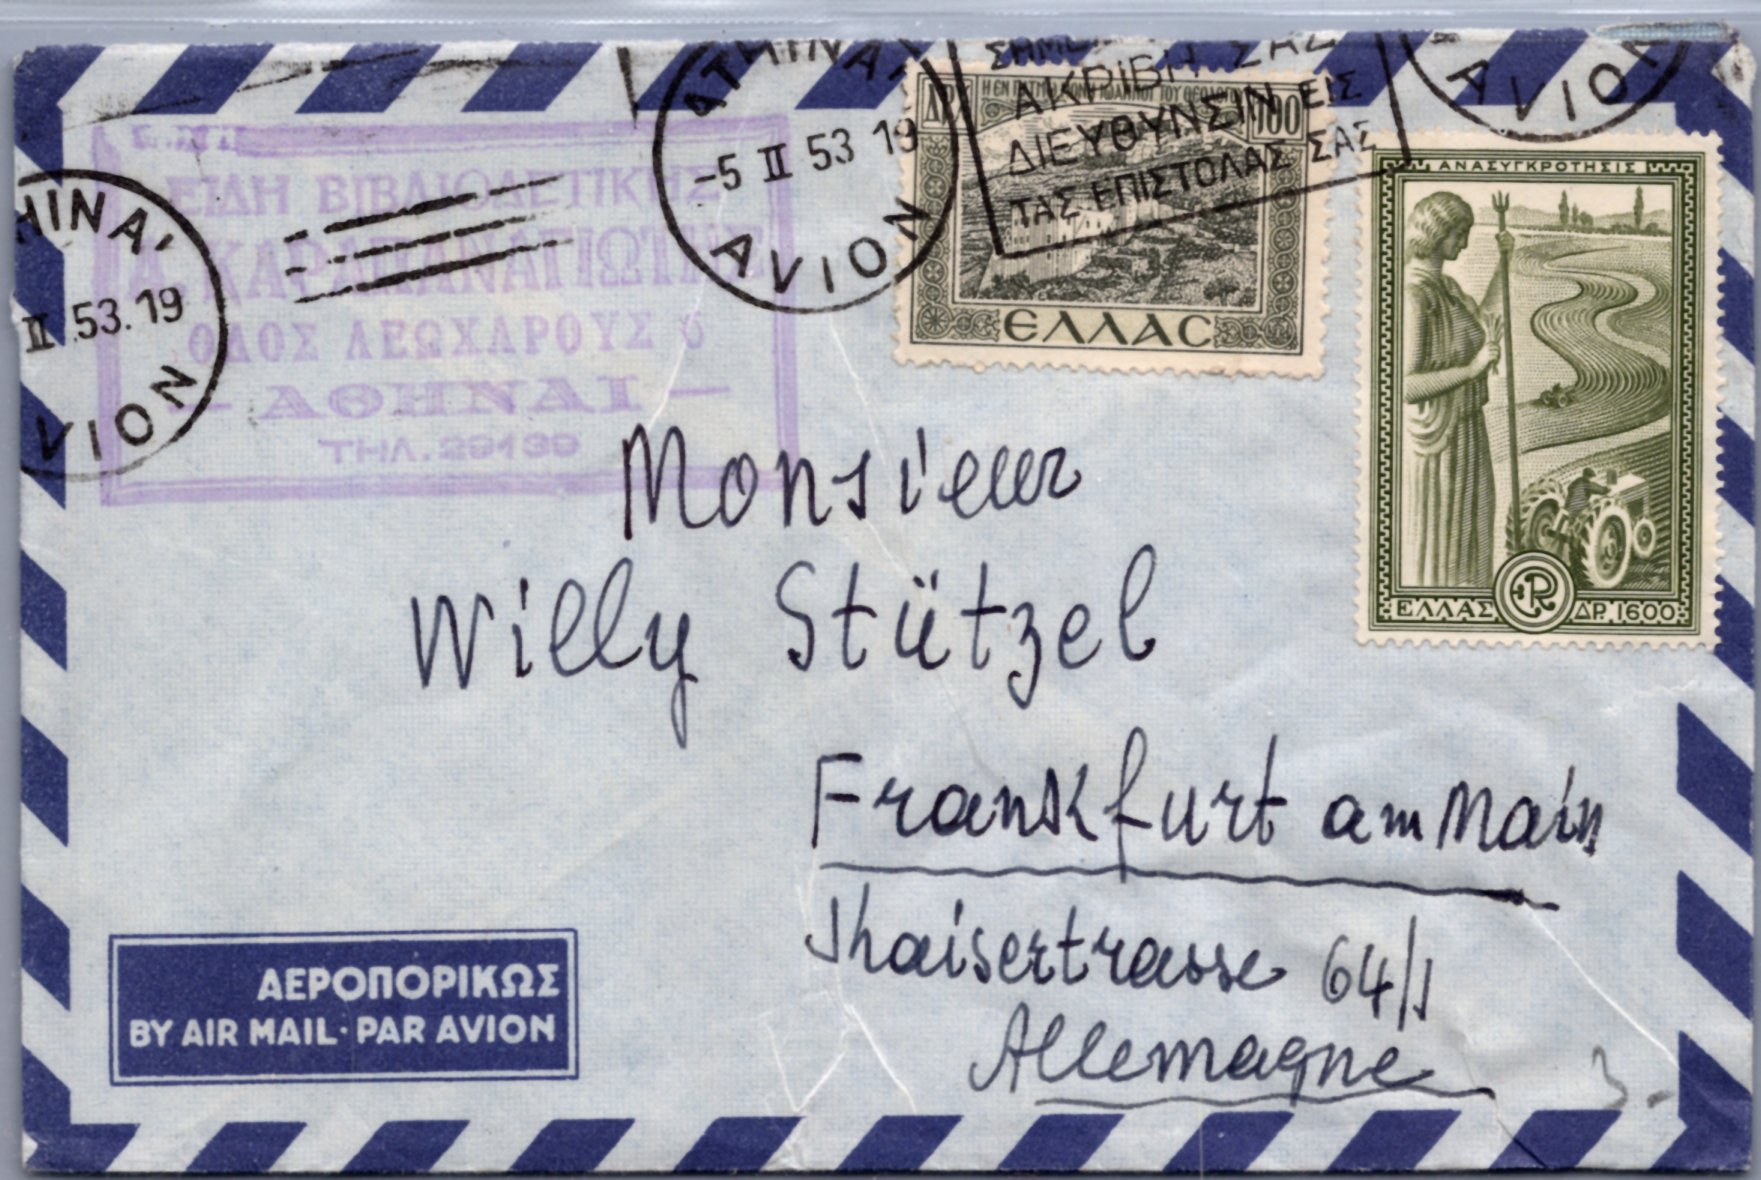 ΑΘΗΝΑΙ
-5 II 53 19
AVION
ΑΚΡΙΒΗ ΣΑΣ
ΔΙΕΥΘΥΝΣΙΝ ΕΙΣ
ΤΑΣ ΕΠΙΣΤΟΛΑΣ ΣΑΣ
AVION
ΗΙΝΑΙ
II 53.19
VION
ΕΙΔΗ ΒΙΒΛΙΟΔΕΤΙΚΗΣ
ΚΑΡΑΠΑΝΑΓΙΩΤΗΣ
ΟΔΟΣ ΛΕΩΧΑΡΟΥΣ 6
- ΑΘΗΝΑΙ -
ΤΗΛ. 29139
ΕΛΛΑC
ΑΝΑΣΥΓΚΡΟΤΗΣΙΣ
ΕΛΛΑΣ ΔΡ. 1600
Monsieur
Willy Stützel
Frankfurt am Main
Khaisertrasse 64/1
Allemagne
3.-
ΑΕΡΟΠΟΡΙΚΩΣ
BY AIR MAIL · PAR AVION